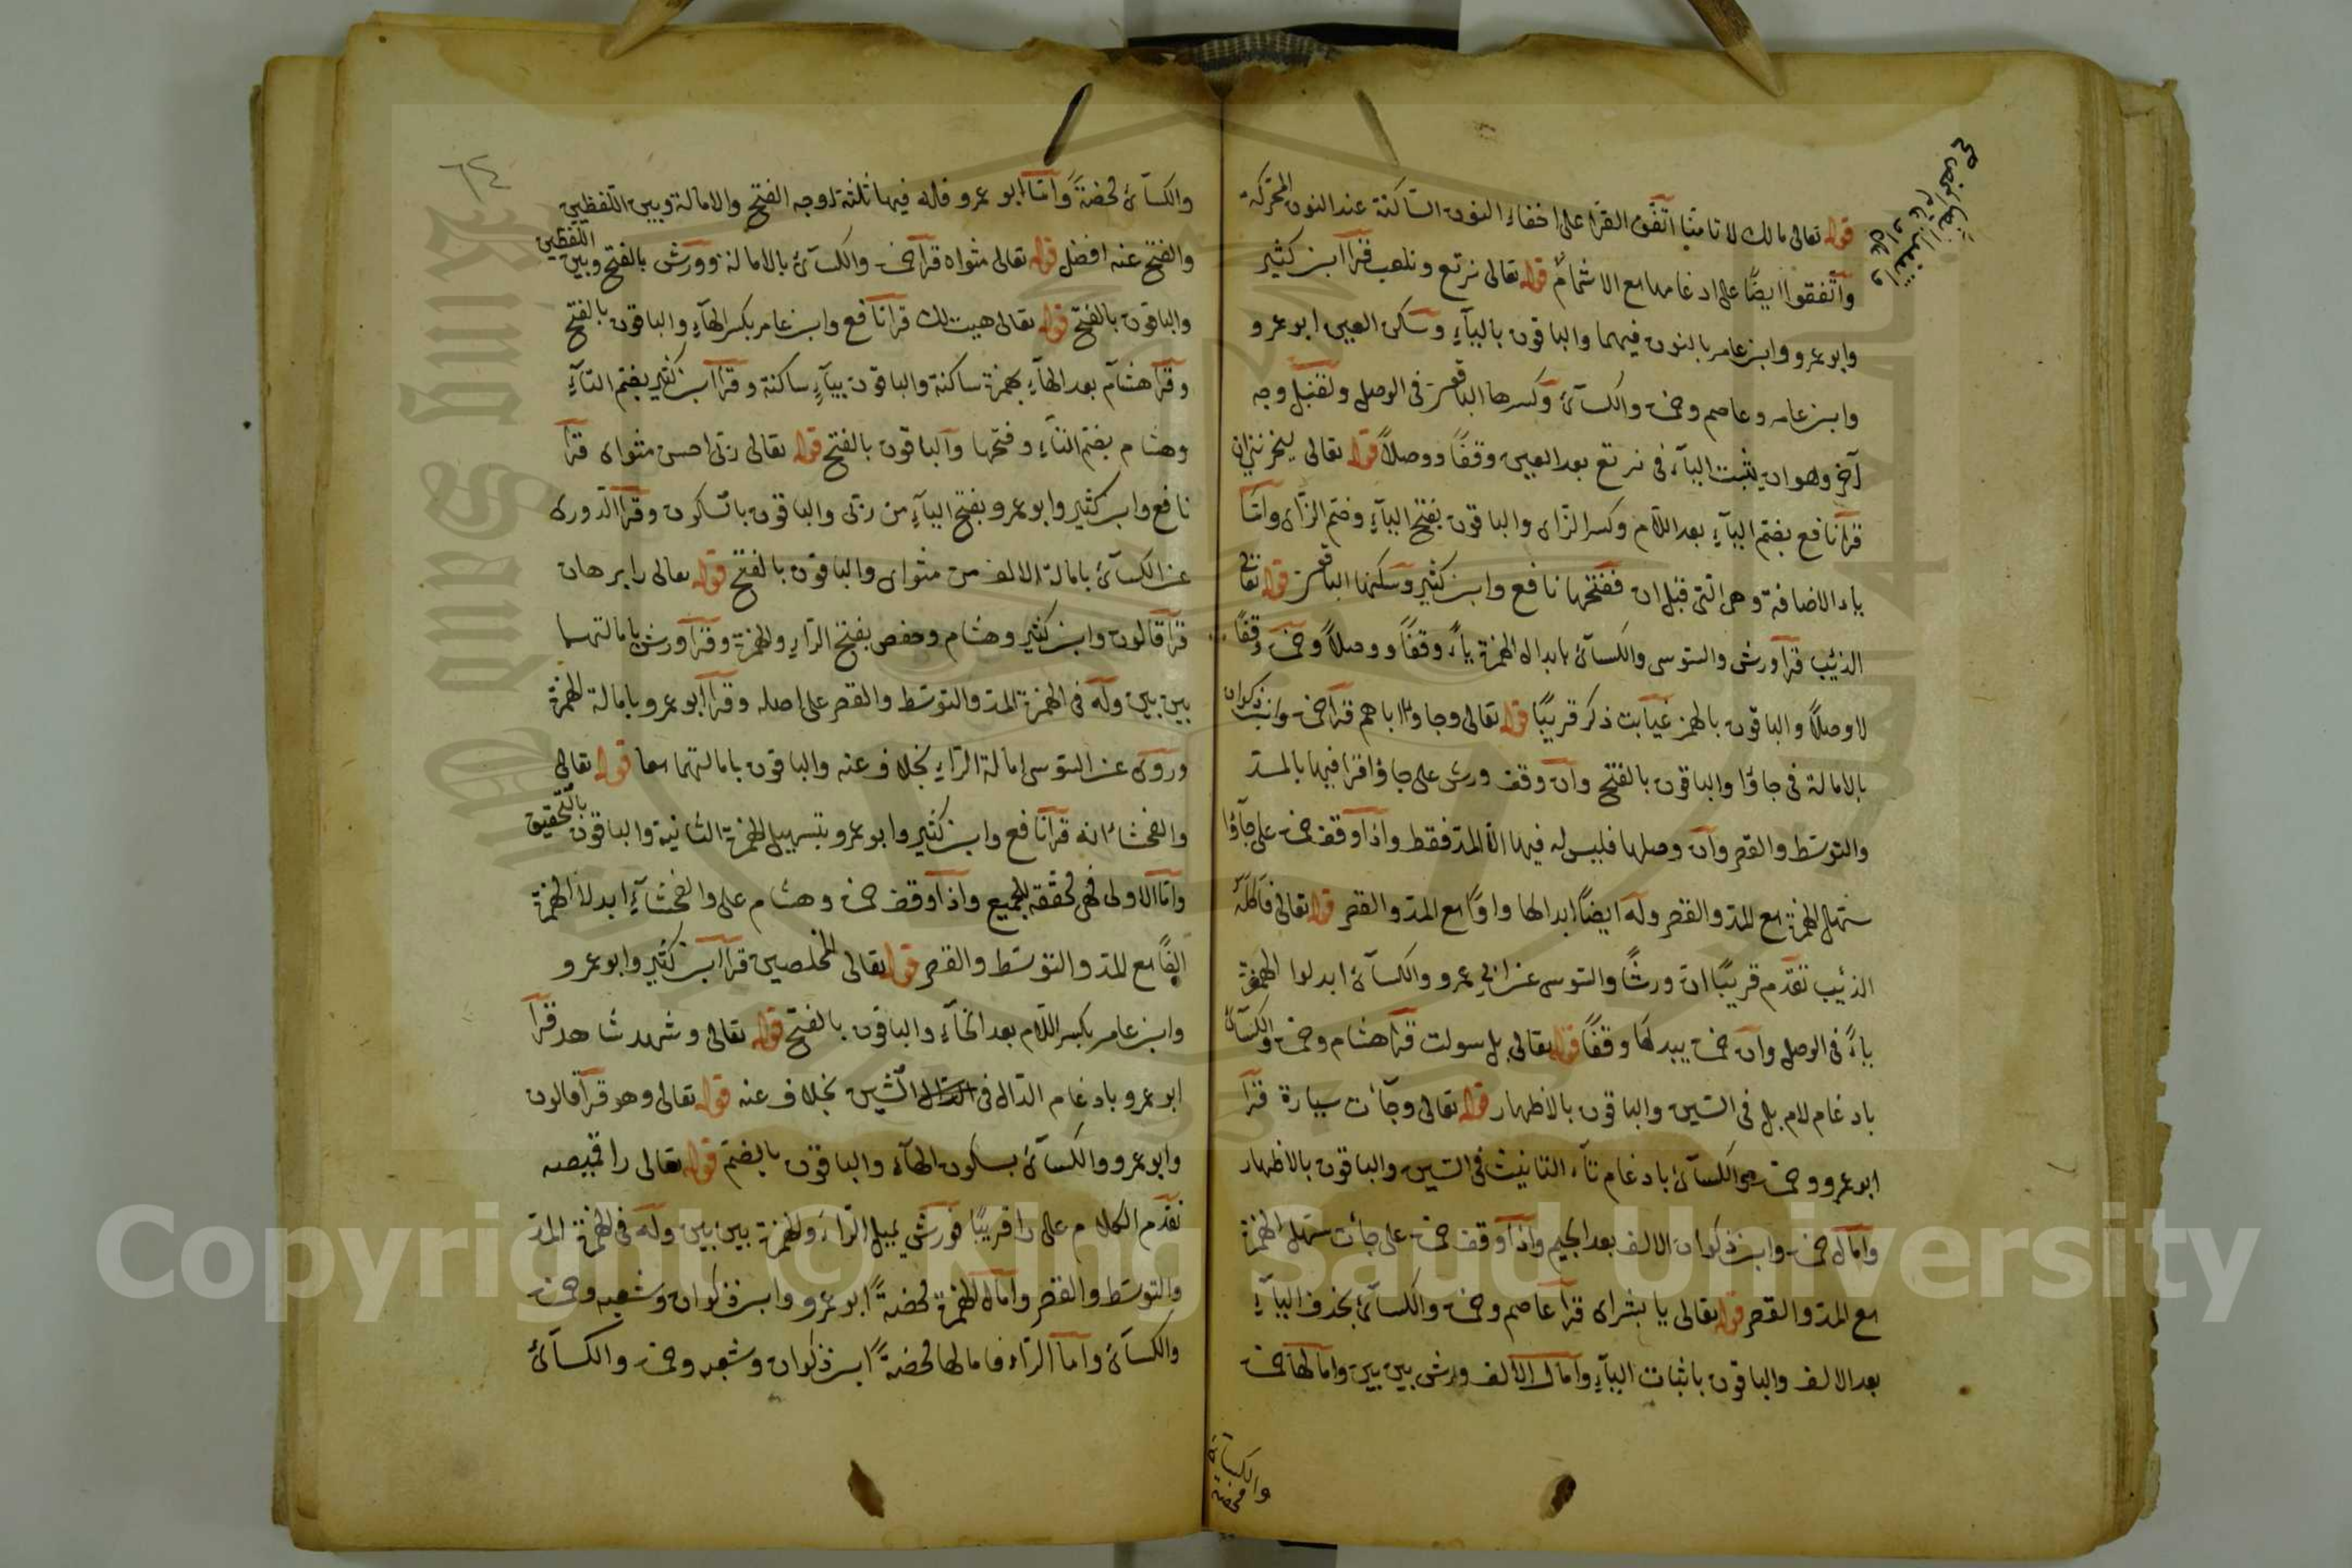 قوله تعالى مالك لا تامنا اتفق القرا على اخفاء النون الساكنة عند النون المتحركة
واتفقوا ايضًا على ادغامها مع الاشمام قوله تعالى نرتع ونلعب قرا ابن كثير
وابو عمرو وابن عامر بالنون فيهما والباقون بالياء وسكن العين ابو عمرو
وابن عامر وعاصم وحمزة والكسائ وكسرها الباقون في الوصل ولقنبل وجه
آخر وهو ان يثبت الياء في نرتع بعد العين وقفًا ووصلاً قوله تعالى ليحزنني ان
قرا نافع بضم الياء بعد اللام وكسر الزاى والباقون بفتح الياء وضم الزاى واما
ياء الاضافة وهى التى قبل ان ففتحها نافع وابن كثير وسكنها الباقون قوله تعالى
الذئب قرا ورش والسوسى والكسائ بابدال الهمزة ياءً وقفًا ووصلاً وحمزة وقفًا
لا وصلاً والباقون بالهمز غيابت ذكر قريبًا قوله تعالى وجاوا اباهم قرا حمزة وابن ذكوان
بالامالة في جاؤا والباقون بالفتح وان وقف ورش على جاؤا قرا فيها بالمد
والتوسط والقصر وان وصلها فليس له فيها الا المد فقط واذا وقف حمزة على جاؤا
سهل الهمزة مع المد والقصر وله ايضًا ابدالها واوًا مع المد والقصر قوله تعالى فاكله
الذئيب تقدم قريبًا ان ورشًا والسوسى عن ابى عمرو والكسائ ابدلوا الهمزة
ياءً في الوصل وان حمزة يبدلها وقفًا قوله تعالى بل سولت قرا هشام وحمزة والكسائ
بادغام لام بل في السين والباقون بالاظهار قوله تعالى وجآئت سيارة قرا
ابو عمرو وحمزة والكسائ بادغام تاء التانيث في السين والباقون بالاظهار
وامال حمزة وابن ذكوان الالف بعد الجيم واذا وقف حمزة على جائت سهل الهمزة
مع المد والقصر قوله تعالى يا بشراى قرا عاصم وحمزة والكسائ بحذف الياء
بعد الالف والباقون باثبات الياء وامال الالف ورش بين بين وامالها حمزة
والكسائ محضة
٦٤
والكسائ محضةً واما ابو عمرو فله فيها ثلثة اوجه الفتح والامالة وبين اللفظين
والفتح عنه افضل قوله تعالى مثواه قرا حمزة والكسائ بالامالة وورش بالفتح وبين اللفظين
والباقون بالفتح قوله تعالى هيت لك قرا نافع وابن عامر بكسر الهاء والباقون بالفتح
وقرا هشام بعد الهاء بهمزة ساكنة والباقون بياء ساكنة وقرا ابن كثير بضم التاء
وهشام بضم التاء وفتحها والباقون بالفتح قوله تعالى ربى احسن مثواى قرا
نافع وابن كثير وابو عمرو بفتح الياء من ربى والباقون بالسكون وقرا الدورى
عن الكسائ بامالة الالف من مثواى والباقون بالفتح قوله تعالى را برهان
قرا قالون وابن كثير وهشام وحفص بفتح الراء والهمزة وقرا ورش بامالتهما
بين بين وله في الهمزة المد والتوسط والقصر على اصله وقرا ابو عمرو بامالة الهمزة
وروى عن السوسى امالة الراء بخلاف عنه والباقون بامالتهما معا قوله تعالى
والفحشاء انه قرا نافع وابن كثير وابو عمرو بتسهيل الهمزة الثانية والباقون بالتحقيق
واما الاولى فهى محققه للجميع واذا وقف حمزة وهشام على والفحشاء ابدلا الهمزة
الفًا مع المد والتوسط والقصر قوله تعالى المخلصين قرا ابن كثير وابو عمرو
وابن عامر بكسر اللام بعد الخاء والباقون بالفتح قوله تعالى وشهد شاهد قرا
ابو عمرو بادغام الدال في الشين بخلاف عنه قوله تعالى وهو قرا قالون
وابو عمرو والكسائ بسكون الهاء والباقون بالضم قوله تعالى را قميصه
تقدم الكلام على را قريبًا فورش يميل الراء والهمزة بين بين وله في الهمزة المد
والتوسط والقصر وامال الهمزة محضةً ابو عمرو وابن ذكوان وشعبه وحمزة
والكسائ واما الراء فامالها محضةً ابن ذكوان وشعبه وحمزة والكسائ
Copyright © King Saud University